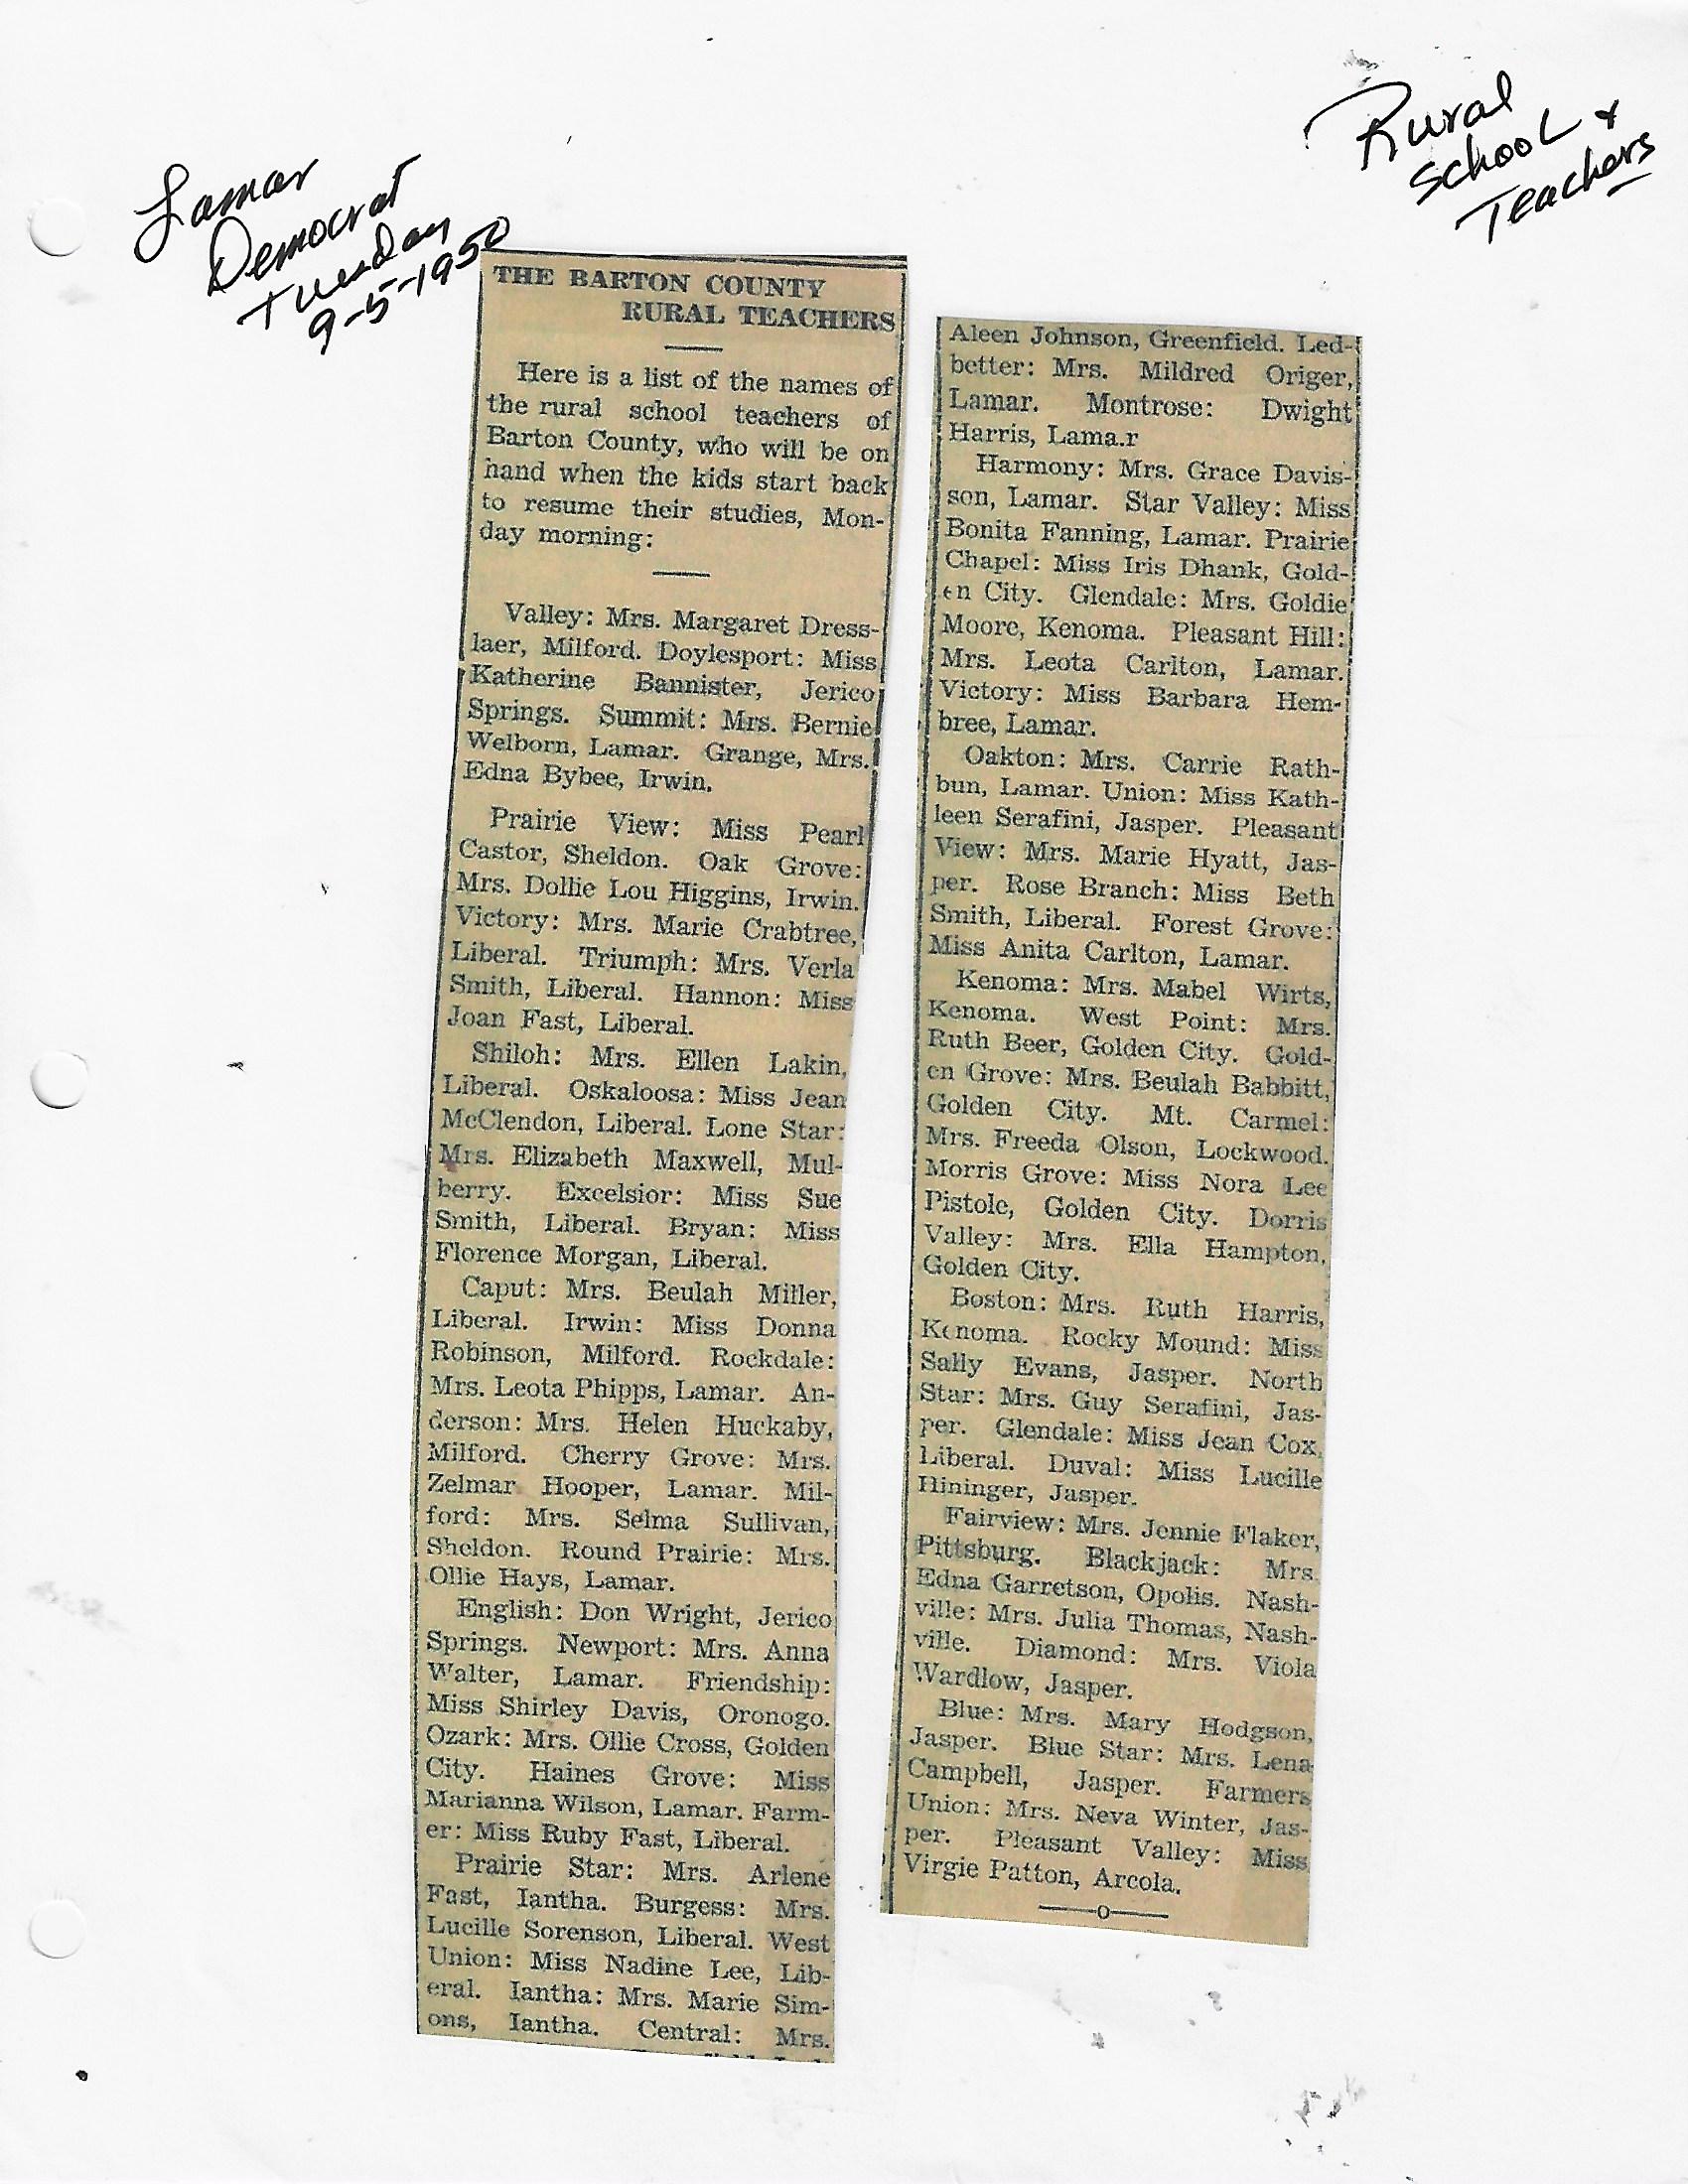 Lamar
Democrat
Tuesday
9-5-1950
Rural
School &
Teachers
THE BARTON COUNTY
RURAL TEACHERS
Here is a list of the names of
the rural school teachers of
Barton County, who will be on
hand when the kids start back
to resume their studies, Mon-
day morning:
Valley: Mrs. Margaret Dress-
laer, Milford. Doylesport: Miss
Katherine Bannister, Jerico
Springs. Summit: Mrs. Bernie
Welborn, Lamar. Grange, Mrs.
Edna Bybee, Irwin.
Prairie View: Miss Pearl
Castor, Sheldon. Oak Grove:
Mrs. Dollie Lou Higgins, Irwin.
Victory: Mrs. Marie Crabtree,
Liberal. Triumph: Mrs. Verla
Smith, Liberal. Hannon: Miss
Joan Fast, Liberal.
Shiloh: Mrs. Ellen Lakin,
Liberal. Oskaloosa: Miss Jean
McClendon, Liberal. Lone Star:
Mrs. Elizabeth Maxwell, Mul-
berry. Excelsior: Miss Sue
Smith, Liberal. Bryan: Miss
Florence Morgan, Liberal.
Caput: Mrs. Beulah Miller,
Liberal. Irwin: Miss Donna
Robinson, Milford. Rockdale:
Mrs. Leota Phipps, Lamar. An-
derson: Mrs. Helen Huckaby,
Milford. Cherry Grove: Mrs.
Zelmar Hooper, Lamar. Mil-
ford: Mrs. Selma Sullivan,
Sheldon. Round Prairie: Mrs.
Ollie Hays, Lamar.
English: Don Wright, Jerico
Springs. Newport: Mrs. Anna
Walter, Lamar. Friendship:
Miss Shirley Davis, Oronogo.
Ozark: Mrs. Ollie Cross, Golden
City. Haines Grove: Miss
Marianna Wilson, Lamar. Farm-
er: Miss Ruby Fast, Liberal.
Prairie Star: Mrs. Arlene
Fast, Iantha. Burgess: Mrs.
Lucille Sorenson, Liberal. West
Union: Miss Nadine Lee, Lib-
eral. Iantha: Mrs. Marie Sim-
ons, Iantha. Central: Mrs.
Aleen Johnson, Greenfield. Led-
better: Mrs. Mildred Origer,
Lamar. Montrose: Dwight
Harris, Lama.r
Harmony: Mrs. Grace Davis-
son, Lamar. Star Valley: Miss
Bonita Fanning, Lamar. Prairie
Chapel: Miss Iris Dhank, Gold-
en City. Glendale: Mrs. Goldie
Moore, Kenoma. Pleasant Hill:
Mrs. Leota Carlton, Lamar.
Victory: Miss Barbara Hem-
bree, Lamar.
Oakton: Mrs. Carrie Rath-
bun, Lamar. Union: Miss Kath-
leen Serafini, Jasper. Pleasant
View: Mrs. Marie Hyatt, Jas-
per. Rose Branch: Miss Beth
Smith, Liberal. Forest Grove:
Miss Anita Carlton, Lamar.
Kenoma: Mrs. Mabel Wirts,
Kenoma. West Point: Mrs.
Ruth Beer, Golden City. Gold-
en Grove: Mrs. Beulah Babbitt,
Golden City. Mt. Carmel:
Mrs. Freeda Olson, Lockwood.
Morris Grove: Miss Nora Lee
Pistole, Golden City. Dorris
Valley: Mrs. Ella Hampton,
Golden City.
Boston: Mrs. Ruth Harris,
Kenoma. Rocky Mound: Miss
Sally Evans, Jasper. North
Star: Mrs. Guy Serafini, Jas-
per. Glendale: Miss Jean Cox,
Liberal. Duval: Miss Lucille
Hininger, Jasper.
Fairview: Mrs. Jennie Flaker,
Pittsburg. Blackjack: Mrs.
Edna Garretson, Opolis. Nash-
ville: Mrs. Julia Thomas, Nash-
ville. Diamond: Mrs. Viola
Wardlow, Jasper.
Blue: Mrs. Mary Hodgson,
Jasper. Blue Star: Mrs. Lena
Campbell, Jasper. Farmers
Union: Mrs. Neva Winter, Jas-
per. Pleasant Valley: Miss
Virgie Patton, Arcola.
——o——